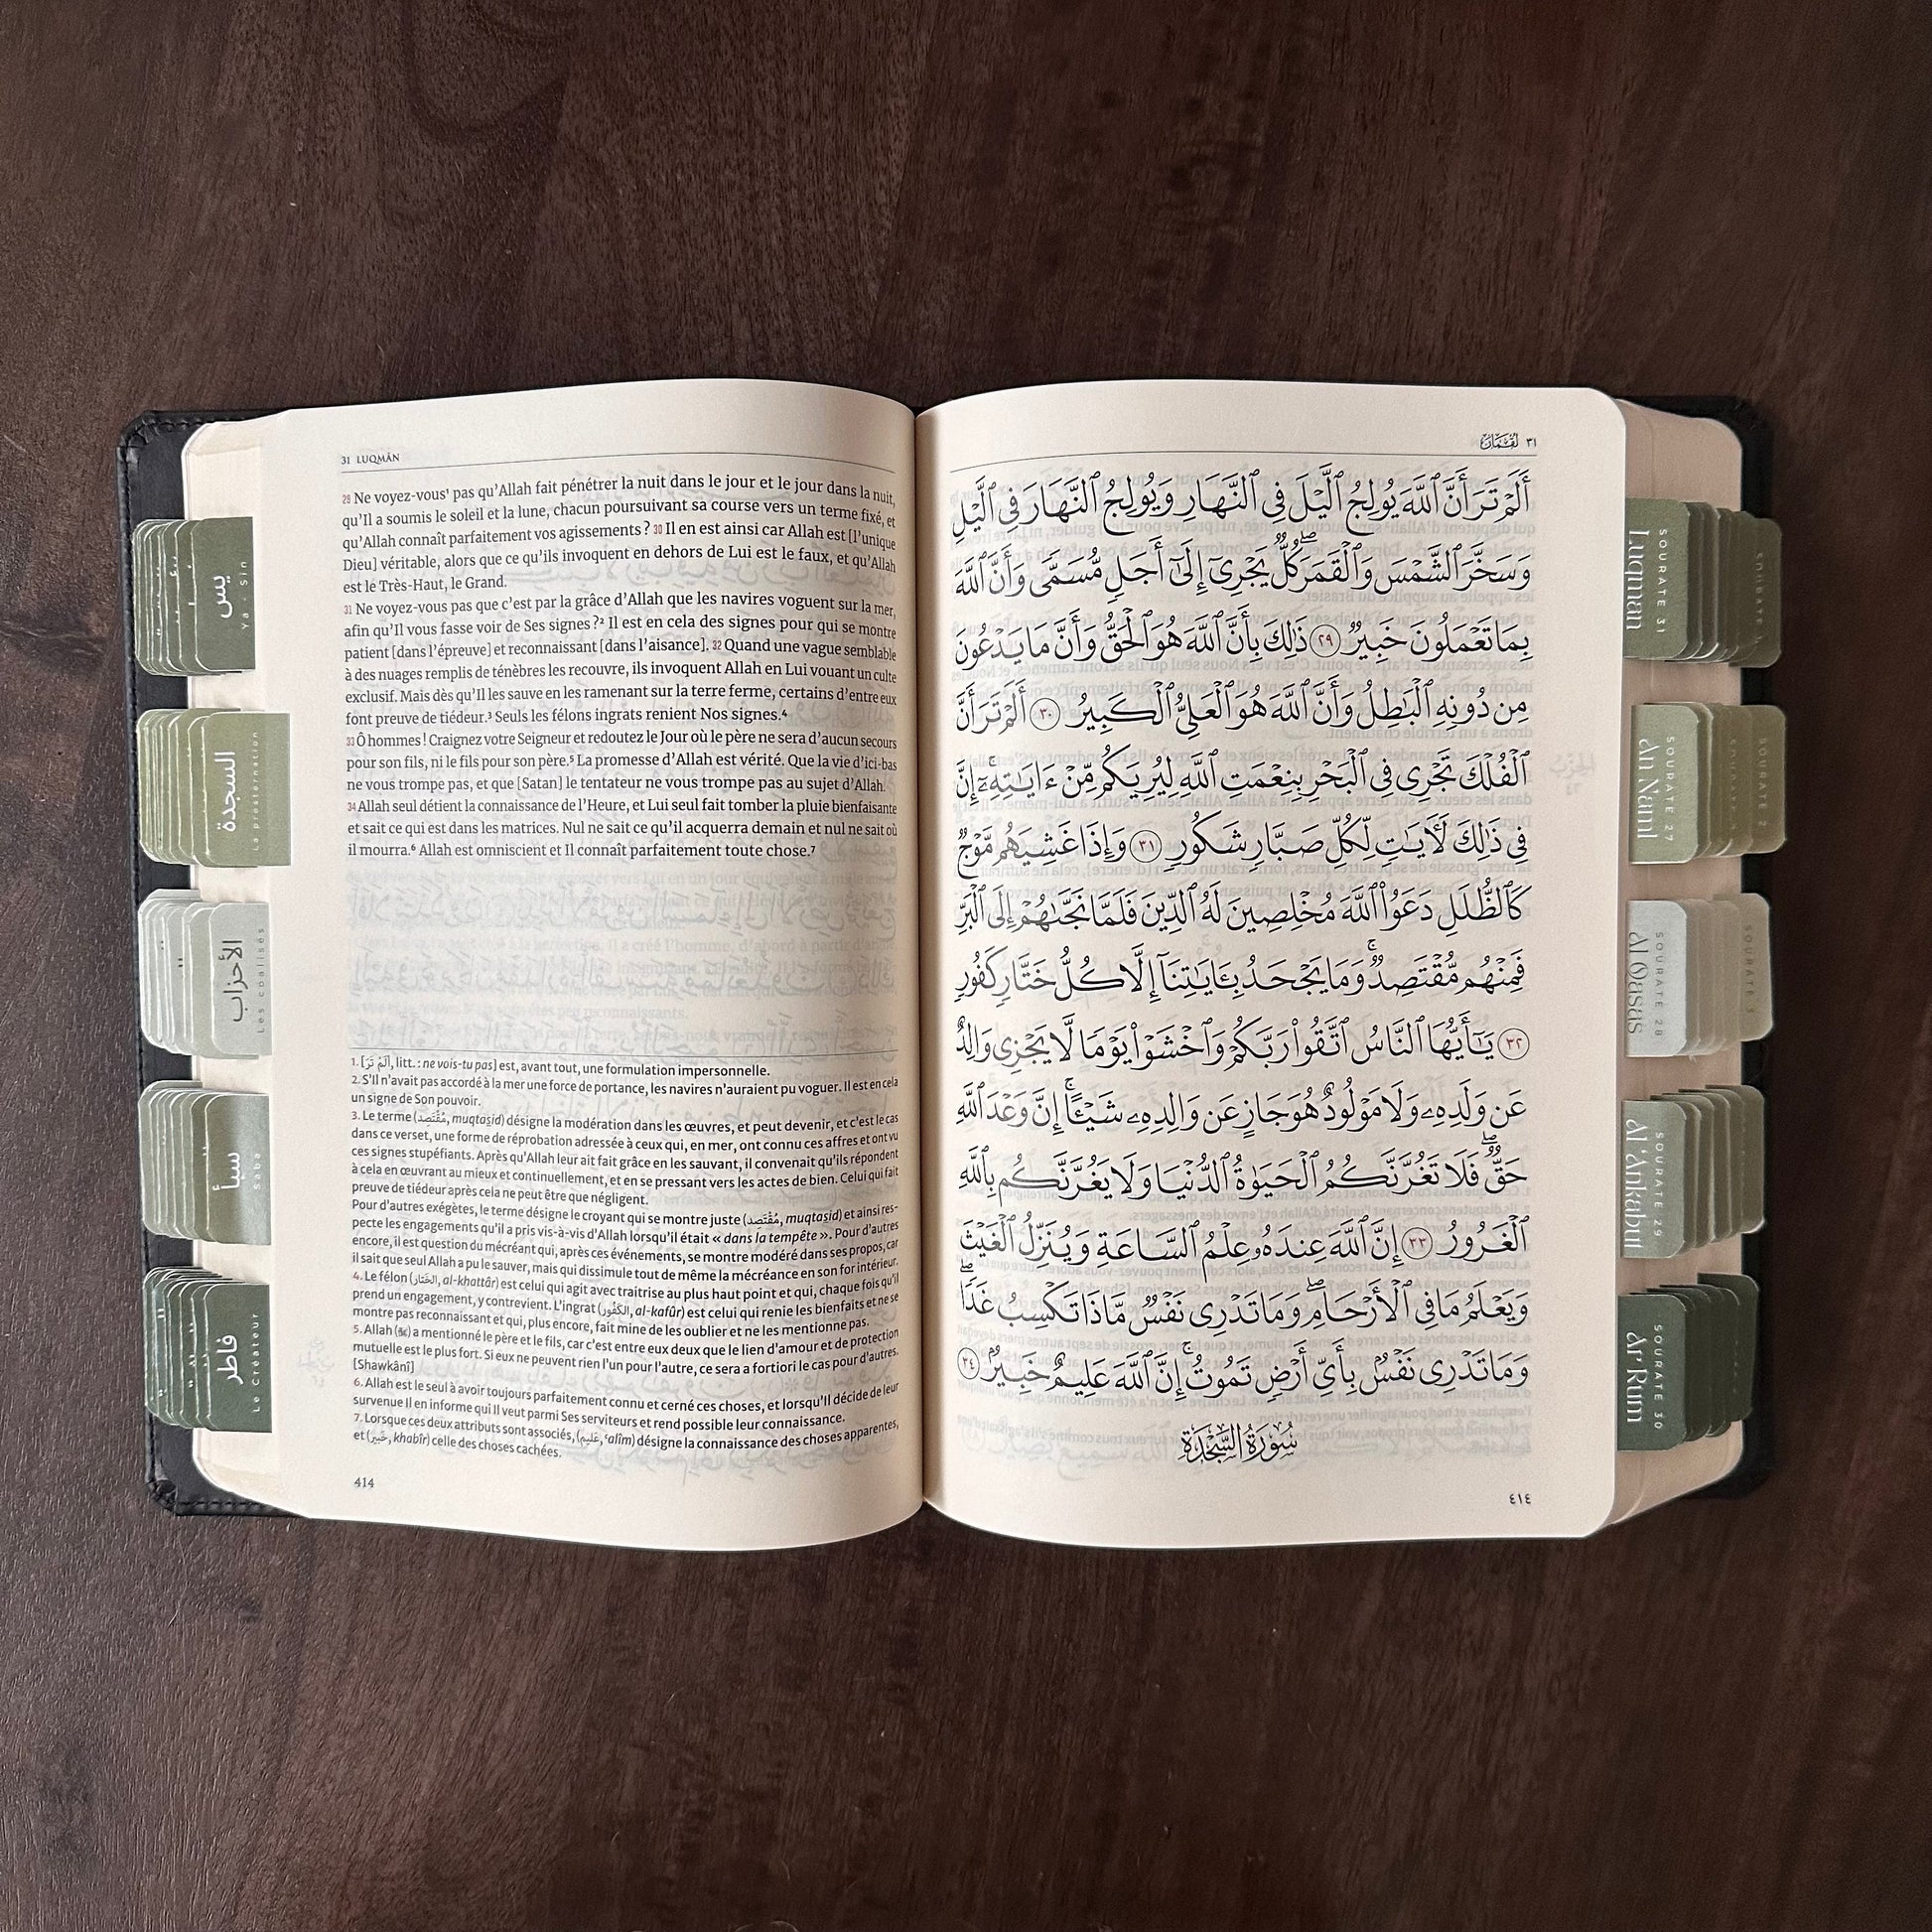 31 LUQMÂN
29 Ne voyez-vous¹ pas qu’Allah fait pénétrer la nuit dans le jour et le jour dans la nuit,
qu’Il a soumis le soleil et la lune, chacun poursuivant sa course vers un terme fixé, et
qu’Allah connaît parfaitement vos agissements ? 30 Il en est ainsi car Allah est [l’unique
Dieu] véritable, alors que ce qu’ils invoquent en dehors de Lui est le faux, et qu’Allah
est le Très-Haut, le Grand.
31 Ne voyez-vous pas que c’est par la grâce d’Allah que les navires voguent sur la mer,
afin qu’Il vous fasse voir de Ses signes ?² Il est en cela des signes pour qui se montre
patient [dans l’épreuve] et reconnaissant [dans l’aisance]. 32 Quand une vague semblable
à des nuages remplis de ténèbres les recouvre, ils invoquent Allah en Lui vouant un culte
exclusif. Mais dès qu’Il les sauve en les ramenant sur la terre ferme, certains d’entre eux
font preuve de tiédeur.³ Seuls les félons ingrats renient Nos signes.⁴
33 Ô hommes ! Craignez votre Seigneur et redoutez le Jour où le père ne sera d’aucun secours
pour son fils, ni le fils pour son père.⁵ La promesse d’Allah est vérité. Que la vie d’ici-bas
ne vous trompe pas, et que [Satan] le tentateur ne vous trompe pas au sujet d’Allah.
34 Allah seul détient la connaissance de l’Heure, et Lui seul fait tomber la pluie bienfaisante
et sait ce qui est dans les matrices. Nul ne sait ce qu’il acquerra demain et nul ne sait où
il mourra.⁶ Allah est omniscient et Il connaît parfaitement toute chose.⁷
1. [أَلَمْ تَرَ, litt. : ne vois-tu pas] est, avant tout, une formulation impersonnelle.
2. S’Il n’avait pas accordé à la mer une force de portance, les navires n’auraient pu voguer. Il est en cela
un signe de Son pouvoir.
3. Le terme (مُقْتَصِد, muqtaṣid) désigne la modération dans les œuvres, et peut devenir, et c’est le cas
dans ce verset, une forme de réprobation adressée à ceux qui, en mer, ont connu ces affres et ont vu
ces signes stupéfiants. Après qu’Allah leur ait fait grâce en les sauvant, il convenait qu’ils répondent
à cela en œuvrant au mieux et continuellement, et en se pressant vers les actes de bien. Celui qui fait
preuve de tiédeur après cela ne peut être que négligent.
Pour d’autres exégètes, le terme désigne le croyant qui se montre juste (مُقْتَصِد, muqtaṣid) et ainsi res-
pecte les engagements qu’il a pris vis-à-vis d’Allah lorsqu’il était « dans la tempête ». Pour d’autres
encore, il est question du mécréant qui, après ces événements, se montre modéré dans ses propos, car
il sait que seul Allah a pu le sauver, mais qui dissimule tout de même la mécréance en son for intérieur.
4. Le félon (الختار, al-khattâr) est celui qui agit avec traitrise au plus haut point et qui, chaque fois qu’il
prend un engagement, y contrevient. L’ingrat (الكفور, al-kafûr) est celui qui renie les bienfaits et ne se
montre pas reconnaissant et qui, plus encore, fait mine de les oublier et ne les mentionne pas.
5. Allah (ﷻ) a mentionné le père et le fils, car c’est entre eux deux que le lien d’amour et de protection
mutuelle est le plus fort. Si eux ne peuvent rien l’un pour l’autre, ce sera a fortiori le cas pour d’autres.
[Shawkânî]
6. Allah est le seul à avoir toujours parfaitement connu et cerné ces choses, et lorsqu’Il décide de leur
survenue Il en informe qui Il veut parmi Ses serviteurs et rend possible leur connaissance.
7. Lorsque ces deux attributs sont associés, (عليم, ʿalîm) désigne la connaissance des choses apparentes,
et (خبير, khabîr) celle des choses cachées.
414
٣١ لُقْمَان
أَلَمْ تَرَ أَنَّ ٱللَّهَ يُولِجُ ٱلَّيْلَ فِى ٱلنَّهَارِ وَيُولِجُ ٱلنَّهَارَ فِى ٱلَّيْلِ
وَسَخَّرَ ٱلشَّمْسَ وَٱلْقَمَرَ كُلٌّۭ يَجْرِىٓ إِلَىٰٓ أَجَلٍۢ مُّسَمًّى وَأَنَّ ٱللَّهَ
بِمَا تَعْمَلُونَ خَبِيرٌۭ ٢٩ ذَٰلِكَ بِأَنَّ ٱللَّهَ هُوَ ٱلْحَقُّ وَأَنَّ مَا يَدْعُونَ
مِن دُونِهِ ٱلْبَٰطِلُ وَأَنَّ ٱللَّهَ هُوَ ٱلْعَلِىُّ ٱلْكَبِيرُ ٣٠ أَلَمْ تَرَ أَنَّ
ٱلْفُلْكَ تَجْرِى فِى ٱلْبَحْرِ بِنِعْمَتِ ٱللَّهِ لِيُرِيَكُم مِّنْ ءَايَٰتِهِۦٓ ۚ إِنَّ
فِى ذَٰلِكَ لَءَايَٰتٍۢ لِّكُلِّ صَبَّارٍۢ شَكُورٍۢ ٣١ وَإِذَا غَشِيَهُم مَّوْجٌۭ
كَٱلظُّلَلِ دَعَوُا۟ ٱللَّهَ مُخْلِصِينَ لَهُ ٱلدِّينَ فَلَمَّا نَجَّىٰهُمْ إِلَى ٱلْبَرِّ
فَمِنْهُم مُّقْتَصِدٌۭ ۚ وَمَا يَجْحَدُ بِـَٔايَٰتِنَآ إِلَّا كُلُّ خَتَّارٍۢ كَفُورٍۢ
٣٢ يَٰٓأَيُّهَا ٱلنَّاسُ ٱتَّقُوا۟ رَبَّكُمْ وَٱخْشَوْا۟ يَوْمًۭا لَّا يَجْزِى وَالِدٌ
عَن وَلَدِهِۦ وَلَا مَوْلُودٌ هُوَ جَازٍ عَن وَالِدِهِۦ شَيْـًٔا ۚ إِنَّ وَعْدَ ٱللَّهِ
حَقٌّۭ ۖ فَلَا تَغُرَّنَّكُمُ ٱلْحَيَوٰةُ ٱلدُّنْيَا وَلَا يَغُرَّنَّكُم بِٱللَّهِ
ٱلْغَرُورُ ٣٣ إِنَّ ٱللَّهَ عِندَهُۥ عِلْمُ ٱلسَّاعَةِ وَيُنَزِّلُ ٱلْغَيْثَ
وَيَعْلَمُ مَا فِى ٱلْأَرْحَامِ ۖ وَمَا تَدْرِى نَفْسٌۭ مَّاذَا تَكْسِبُ غَدًۭا ۖ
وَمَا تَدْرِى نَفْسٌۢ بِأَىِّ أَرْضٍۢ تَمُوتُ ۚ إِنَّ ٱللَّهَ عَلِيمٌ خَبِيرٌۢ ٣٤
سُورَةُ السَّجْدَةِ
٤١٤
يس
Ya - Sin
السجدة
La prosternation
الأحزاب
Les coalisés
سبأ
Saba
فاطر
Le Créateur
SOURATE 31
Luqman
SOURATE 27
An Naml
SOURATE 28
Al Qasas
SOURATE 29
Al 'Ankabut
SOURATE 30
Ar' Rum